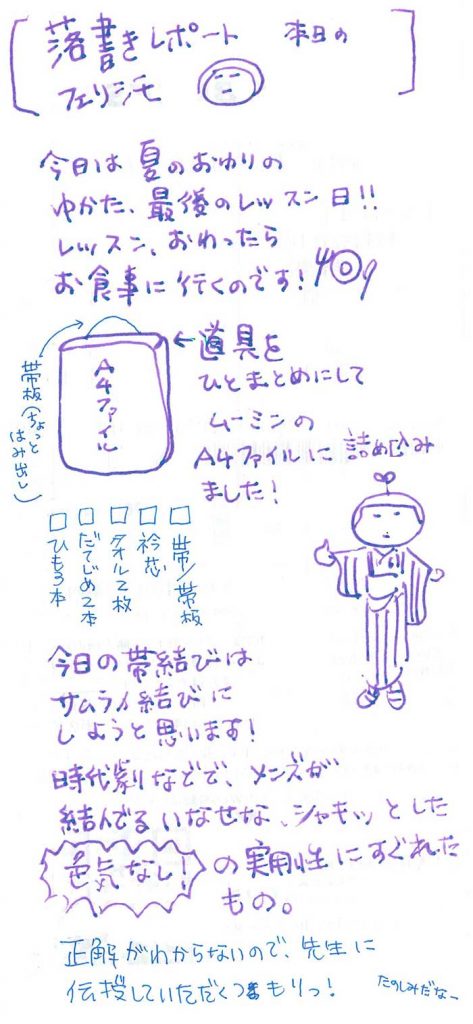 落書きレポート 本日の
フェリシモ
今日は夏のおゆりの
ゆかた、最後のレッスン日!!
レッスン、おわったら
お食事に行くのです!
←道具を
ひとまとめにして
ムーミンの
A4ファイルに詰め込み
ました!
A4ファイル
帯板(ちょっと
はみ出し)
□帯/帯板
□衿芯
□タオル2枚
□だてじめ2本
□ひも3本
今日の帯結びは
サムライ結びに
しようと思います!
時代劇などで、メンズが
結んでるいなせな、シャキッとした
色気なし!の実用性にすぐれた
もの。
正解がわからないので、先生に
伝授していただくつもりっ!
たのしみだなー